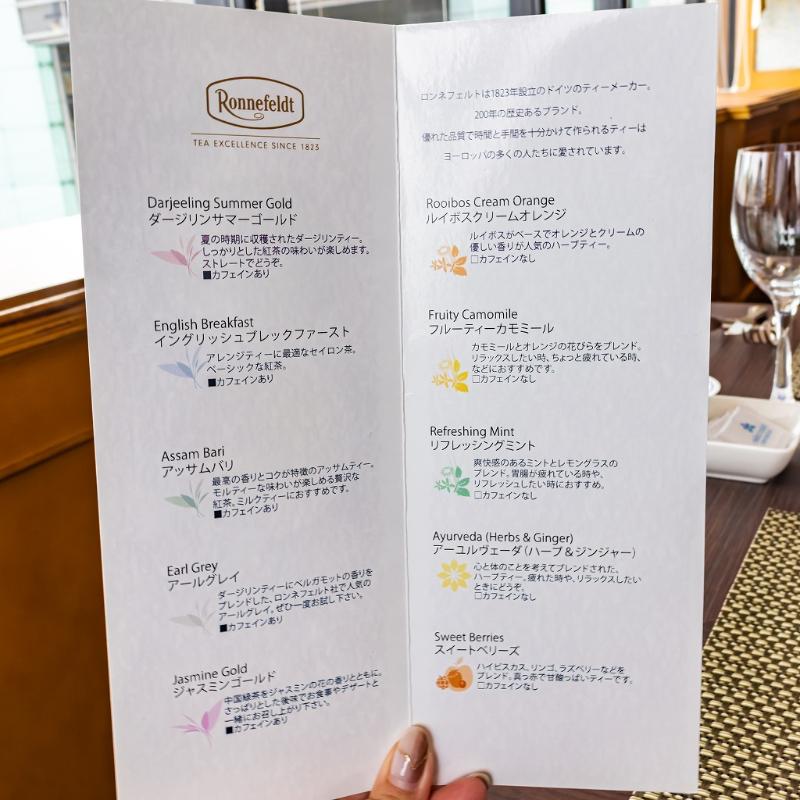 Ronnefeldt
TEA EXCELLENCE SINCE 1823
Darjeeling Summer Gold
ダージリンサマーゴールド
夏の時期に収穫されたダージリンティー。
しっかりとした紅茶の味わいが楽しめます。
ストレートでどうぞ。
■カフェインあり
English Breakfast
イングリッシュブレックファースト
アレンジティーに最適なセイロン茶。
ベーシックな紅茶。
■カフェインあり
Assam Bari
アッサムバリ
最高の香りとコクが特徴のアッサムティー。
モルティーな味わいが楽しめる贅沢な
紅茶。ミルクティーにおすすめです。
■カフェインあり
Earl Grey
アールグレイ
ダージリンティーにベルガモットの香りを
ブレンドした、ロンネフェルト社で人気の
アールグレイ。ぜひ一度お試し下さい。
■カフェインあり
Jasmine Gold
ジャスミンゴールド
中国緑茶をジャスミンの花の香りとともに。
さっぱりとした後味でお食事やデザートと
一緒にお召し上がり下さい。
■カフェインあり
ロンネフェルトは1823年設立のドイツのティーメーカー。
200年の歴史あるブランド。
優れた品質で時間と手間を十分かけて作られるティーは
ヨーロッパの多くの人たちに愛されています。
Rooibos Cream Orange
ルイボスクリームオレンジ
ルイボスがベースでオレンジとクリームの
優しい香りが人気のハーブティー。
□カフェインなし
Fruity Camomile
フルーティーカモミール
カモミールとオレンジの花びらをブレンド。
リラックスしたい時、ちょっと疲れている時、
などにおすすめです。
□カフェインなし
Refreshing Mint
リフレッシングミント
爽快感のあるミントとレモングラスの
ブレンド。胃腸が疲れている時や、
リフレッシュしたい時におすすめ。
□カフェインなし
Ayurveda (Herbs & Ginger)
アーユルヴェーダ（ハーブ＆ジンジャー）
心と体のことを考えてブレンドされた、
ハーブティー。疲れた時や、リラックスしたい
ときにどうぞ。
□カフェインなし
Sweet Berries
スイートベリーズ
ハイビスカス、リンゴ、ラズベリーなどを
ブレンド。真っ赤で甘酸っぱいティーです。
□カフェインなし